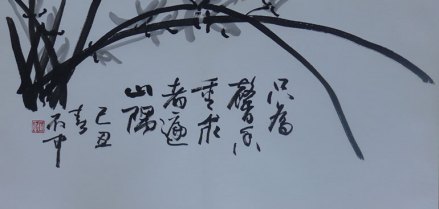 只為
馨香
重求
者遍
山隅
己丑
春